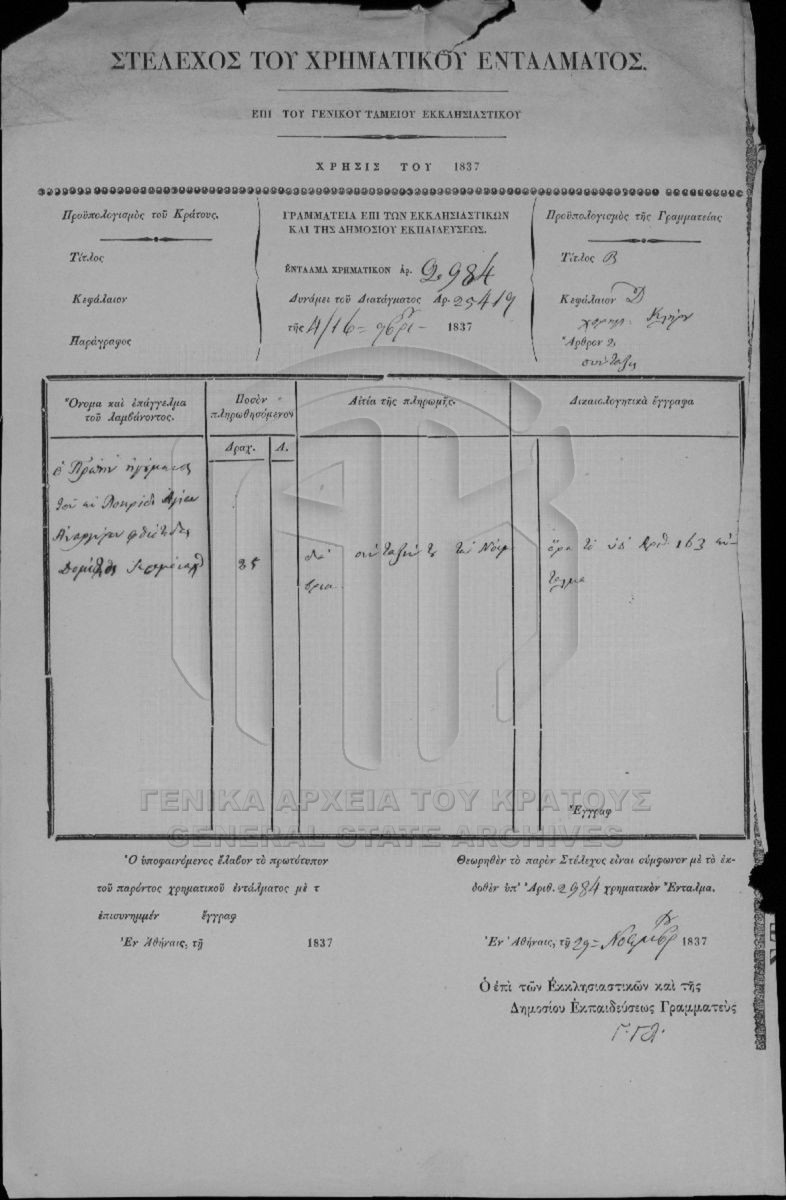 ΣΤΕΛΕΧΟΣ ΤΟΥ ΧΡΗΜΑΤΙΚΟΥ ΕΝΤΑΛΜΑΤΟΣ.
ΕΠΙ ΤΟΥ ΓΕΝΙΚΟΥ ΤΑΜΕΙΟΥ ΕΚΚΛΗΣΙΑΣΤΙΚΟΥ
ΧΡΗΣΙΣ ΤΟΥ 1837
Προϋπολογισμὸς τοῦ Κράτους.
Τίτλος
Κεφάλαιον
Παράγραφος
ΓΡΑΜΜΑΤΕΙΑ ΕΠΙ ΤΩΝ ΕΚΚΛΗΣΙΑΣΤΙΚΩΝ
ΚΑΙ ΤΗΣ ΔΗΜΟΣΙΟΥ ΕΚΠΑΙΔΕΥΣΕΩΣ.
ΕΝΤΑΛΜΑ ΧΡΗΜΑΤΙΚΟΝ ἀρ. 2984
Δυνάμει τοῦ Διατάγματος Ἀρ. 25419
τῆς 4/16 1837
Προϋπολογισμὸς τῆς Γραμματείας
Τίτλος Β
Κεφάλαιον Δ
Κλήρου
Ἄρθρον 2
σύνταξις
Ὄνομα καὶ ἐπάγγελμα
τοῦ λαμβάνοντος.
Ποσὸν
πληρωθησόμενον
Αἰτία τῆς πληρωμῆς.
Δικαιολογητικὰ ἔγγραφα
Δραχ. Λ.
ὁ Πρώην ἡγούμενος
τοῦ Λοκρίδι Ἁγίων
Ἀναργύρων φθιώτιδος
35
διὰ σύνταξίν του τοῦ Νοεμ
βρίου
ὅρα τὸ ὑπ' Ἀριθ. 163 ἔν-
ταλμα
Ἔγγραφ
ΓΕΝΙΚΑ ΑΡΧΕΙΑ ΤΟΥ ΚΡΑΤΟΥΣ
GENERAL STATE ARCHIVES
Ὁ ὑποφαινόμενος ἔλαβον τὸ πρωτότυπον
τοῦ παρόντος χρηματικοῦ ἐντάλματος μὲ τ
ἐπισυνημμέν ἔγγραφ
Ἐν Ἀθήναις, τῇ 1837
Θεωρηθὲν τὸ παρὸν Στέλεχος εἶναι σύμφωνον μὲ τὸ ἐκ-
δοθὲν ὑπ' Ἀριθ. 2984 χρηματικὸν Ἔνταλμα.
Ἐν Ἀθήναις, τῇ 29 Νοεμβρ 1837
Ὁ ἐπὶ τῶν Ἐκκλησιαστικῶν καὶ τῆς
Δημοσίου Ἐκπαιδεύσεως Γραμματεὺς